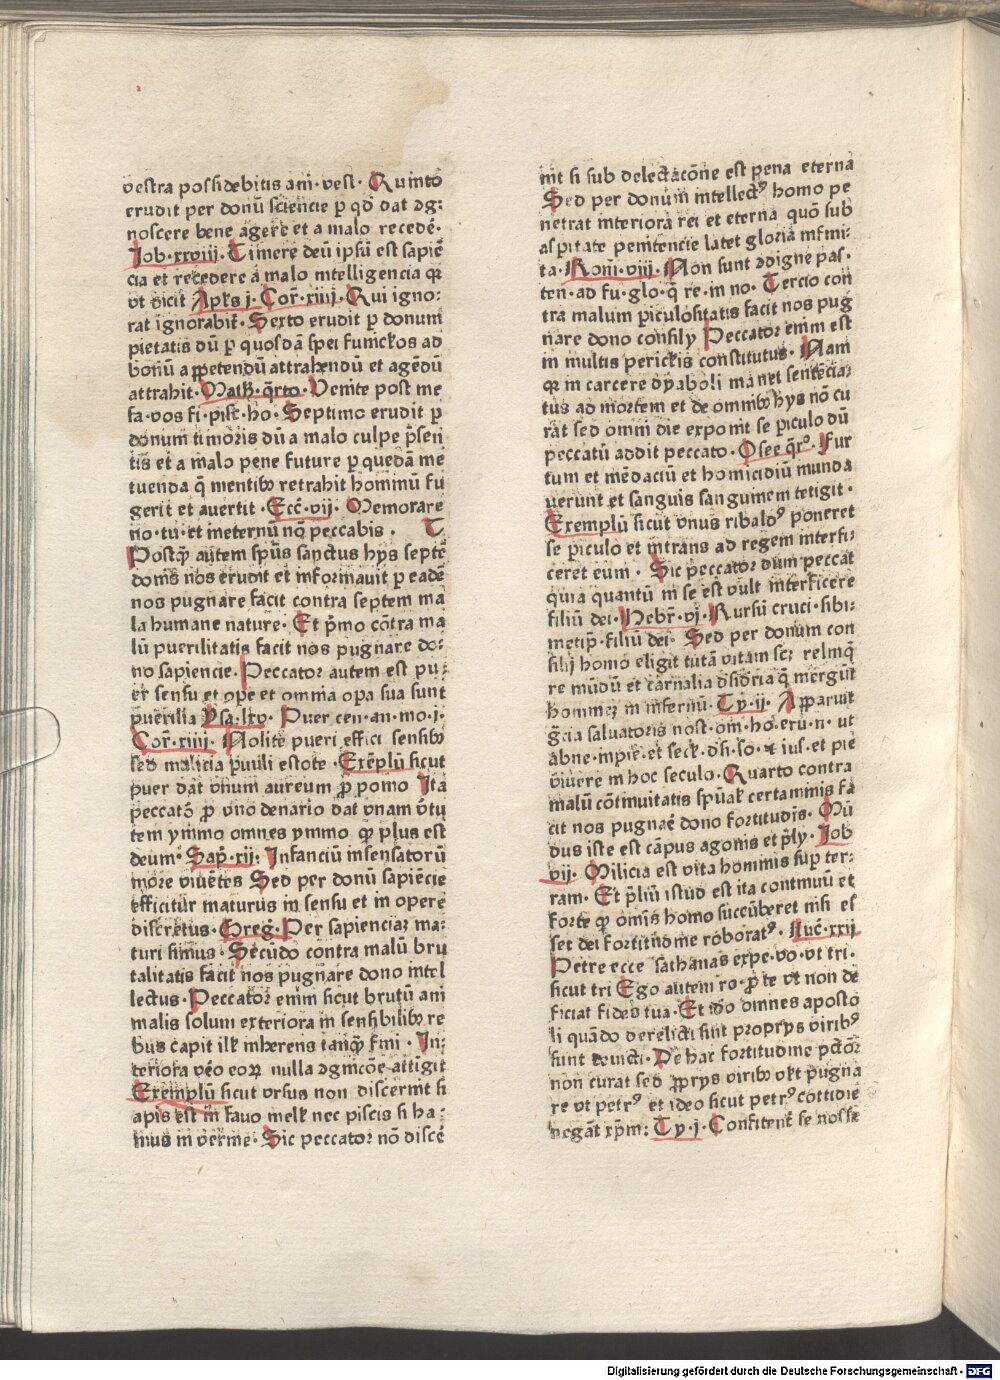 vestra possidebitis ani·vest· Quinto
erudit per donū sciencie ꝑ qd̄ dat ꝯg:
noscere bene agere et a malo recedē·
Job·xxviii· Timere deū ipsū est sapiē
cia et recedere a malo intelligencia qꝛ
vt dicit Apl̄s j·Cor̄·xiiij·Qui igno:
rat ignorabit̄· Sexto erudit ꝑ donum
pietatis dū ꝑ quosdā spei funicl̄os ad
bonū appetendū attrahendū et agēdū
attrahit·Math̄·q̄rto·Venite post me
fa·vos fi·pisc̄·ho·Septimo erudit ꝑ
donum timoris dū a malo culpe p̄sen
tis et a malo pene future ꝑ quedā me
tuenda q̄ mentibꝰ retrahit hominū fu
gerit et auertit·Ecc̄·vij· Memorare
no·tu·et ineternū nō peccabis· T
Postꝙ̄ autem spūs sanctus hys septē
donis nos erudit et informauit ꝑ eadē
nos pugnare facit contra septem ma
la humane nature· Et p̄mo cōtra ma
lū puerilitatis facit nos pugnare do:
no sapiencie·Peccator autem est pu:
er sensu et ope et omnia opa sua sunt
puerilia Ysa·lxv· Puer cen·an·mo·j·
Cor̄·xiiij· Nolite pueri effici sensibꝰ
sed malicia puuli estote·Exēplū sicut
puer dat vnum aureum ꝓ pomo Ita
peccatoꝛ ꝓ vno denario dat vnam v̄tu
tem ymmo omnes ymmo qꝛ plus est
deum· Sap̄·xij: Infanciū insensatorū
more viuētes Sed per donū sapiēcie
efficitur maturus in sensu et in opere
discretus·Greḡ·Per sapienciaꝫ ma:
turi simus· Secūdo contra malū bru
talitatis facit nos pugnare dono intel
lectus·Peccator enim sicut brutū ani
malis solum exteriora in sensibilibꝰ re
bus capit ill̄ inherens tanqꝫ fini· In:
teriora v̄o eoꝝ nulla ꝯgnicōe attigit
Exemplū sicut vrsus non discernit si
apis est in fauo mell̄ nec piscis si ha:
mus in verme· Sic peccator nō discē
nit si sub delectacōne est pena eterna
Sed per donum intellectꝰ homo pe
netrat interiora rei et eterna quō sub
aspitate penitencie latet gloria infini:
ta·Rom̄·viii· Non sunt ꝯdigne pas·
ten·ad fu·glo·q̄ re·in no· Tercio con
tra malum piculositatis facit nos pug
nare dono consily Peccator enim est
in multis pericl̄is constitutus· Nam
qꝛ in carcere dyaboli manet sentēcia:
tus ad mortem et de omnibꝰ hys nō cu
rat sed omni die exponit se piculo dū
peccatū addit peccato·Osee q̄rꝰ· Fur
tum et mēdaciū et homicidiū munda
uerunt et sanguis sanguinem tetigit·
Exemplū sicut vnus ribaldꝰ poneret
se piculo et intrans ad regem interfi:
ceret eum· Sic peccator dum peccat
quia quantū in se est vult interficere
filiū dei·Hebr̄·vj·Rursū cruci·sibi:
metip̄·filiū dei· Sed per donum con
silij homo eligit tutā vitam scꝫ relinq̄
re mūdū et carnalia dsidria q̄ mergūt
homineꝫ in infernū·Ty·ij· Apparuit
gr̄cia saluatoris nost·om·ho·eru·n·ut
abne·inpie·et secl̄·dsi·so·et ius·et pie
viuere in hoc seculo·Quarto contra
malū cōtinuitatis spūal̄ certaminis fa
cit nos pugnare dono fortitudis· Mū
dus iste est cāpus agonis et p̄ly·Job
vij· Milicia est vita hominis sup ter:
ram· Et p̄liū istud est ita continuū et
forte qꝛ om̄is homo succūberet nisi es
set dei fortitudine roboratꝰ· Luc̄·xxij
Petre ecce sathanas expe·vo·vt tri·
sicut tri Ego autem ro·ꝓ te vt non de
ficiat fides tua·Et iō omnes aposto
li quādo derelicti sūt proprys viribꝰ
sunt deuicti·De hac fortitudine pctōr
non curat sed ꝓprys viribꝰ vl̄t pugna
re vt petrꝰ et ideo sicut petrꝰ cottidie
negat xp̄m: Ty·j·Confitent̄ se nosse
Digitalisierung gefördert durch die Deutsche Forschungsgemeinschaft · DFG